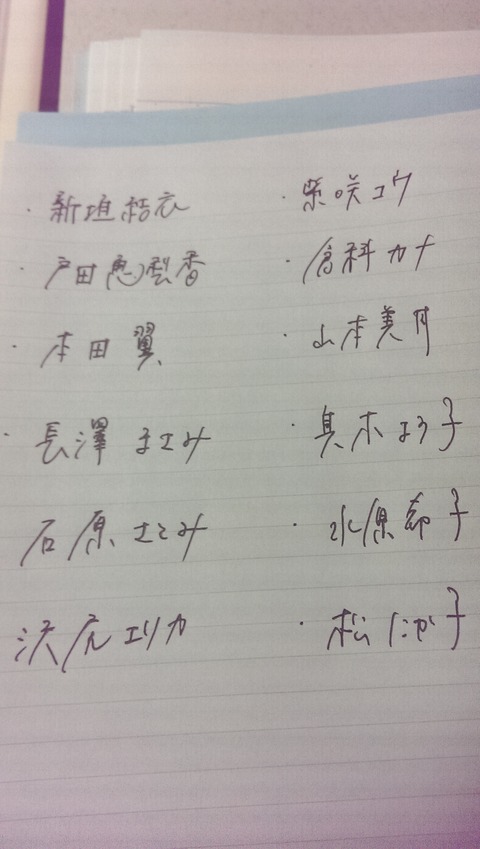 ・新垣結衣
・戸田恵梨香
・本田翼
・長澤まさみ
石原さとみ
沢尻エリカ
・柴咲コウ
・倉科カナ
・山本美月
・真木よう子
・水原希子
・松たか子